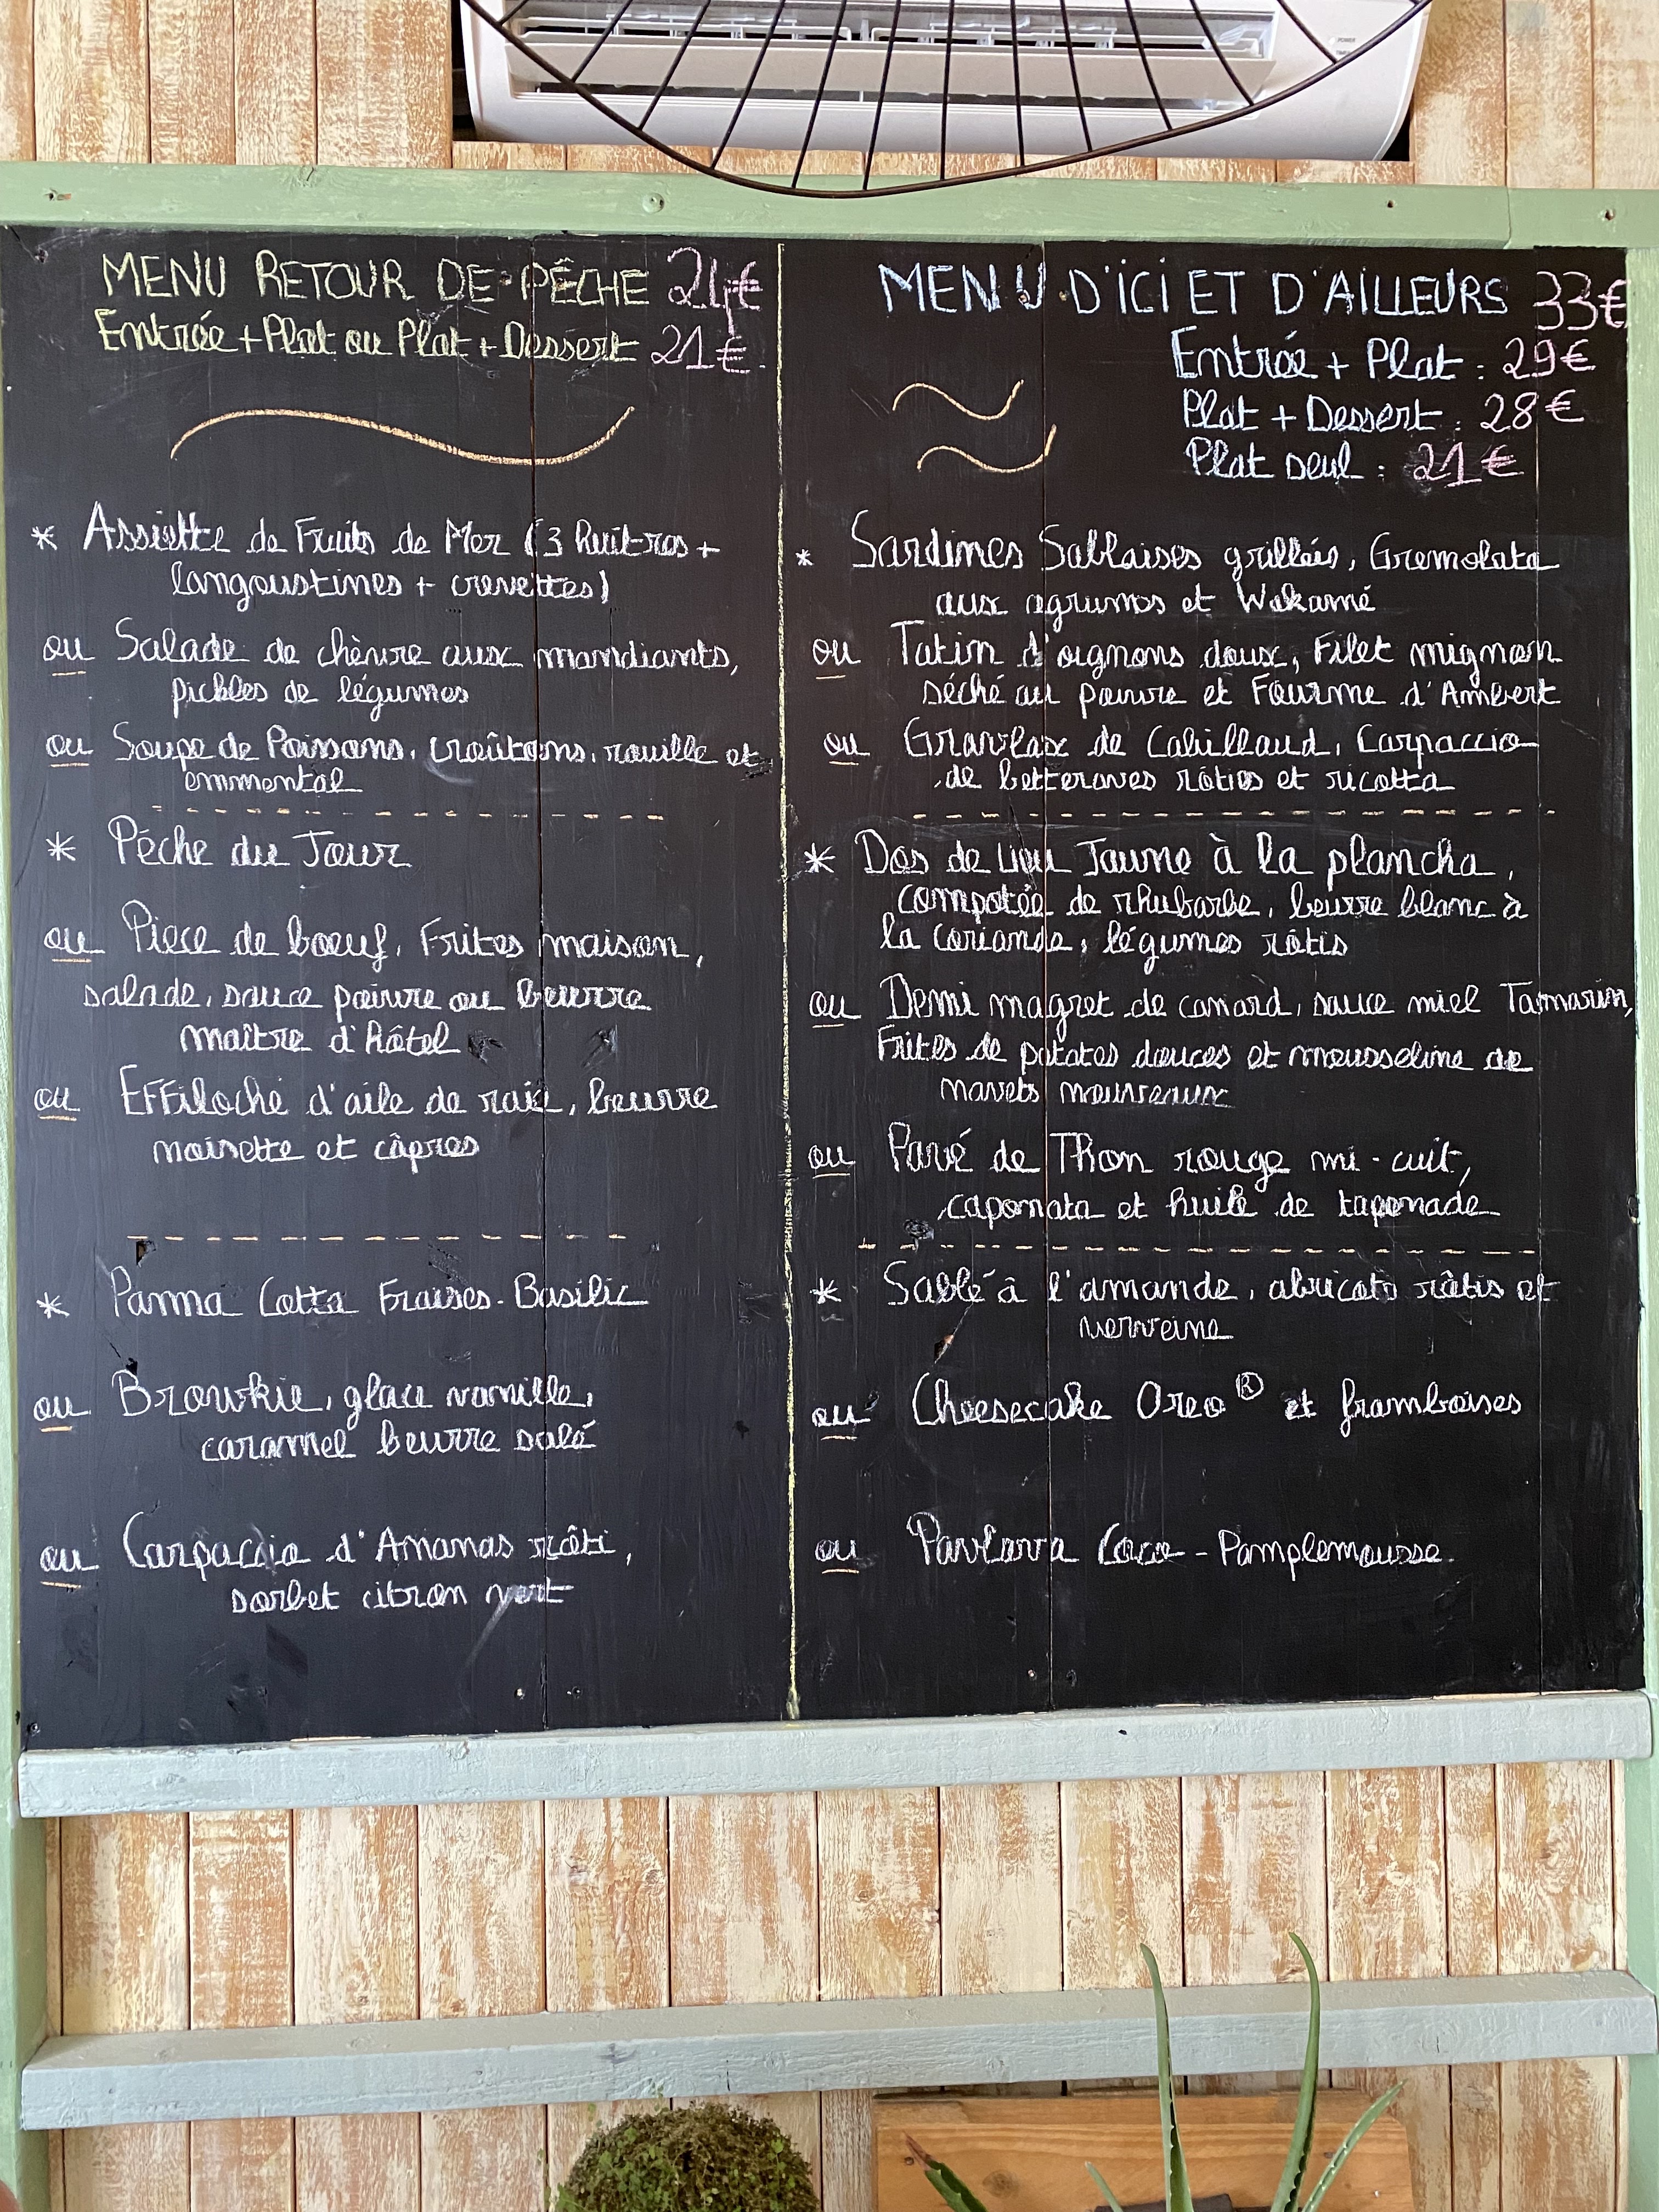 MENU RETOUR DE PÊCHE 24€
Entrée + Plat ou Plat + Dessert 21€
* Assiette de Fruits de Mer (3 Huîtres +
langoustines + crevettes)
ou Salade de chèvre aux mandiants,
pickles de légumes
ou Soupe de Poissons, croûtons, rouille et
emmental
* Pêche du Jour
ou Pièce de bœuf, Frites maison,
salade, sauce poivre ou beurre
maître d'hôtel
ou Effiloché d'aile de raie, beurre
noisette et câpres
* Panna Cotta Fraises-Basilic
ou Brownie, glace vanille,
caramel beurre salé
ou Carpaccio d'Ananas rôti,
sorbet citron vert
MENU D'ICI ET D'AILLEURS 33€
Entrée + Plat : 29€
Plat + Dessert : 28€
Plat seul : 21€
* Sardines Sablaises grillées, Gremolata
aux agrumes et Wakamé
ou Tatin d'oignons doux, Filet mignon
séché au poivre et Fourme d'Ambert
ou Gravlax de Cabillaud, Carpaccio
de betteraves rôties et ricotta
* Dos de Lieu Jaune à la plancha,
compotée de rhubarbe, beurre blanc à
la coriande, légumes rôtis
ou Demi magret de canard, sauce miel Tamarin,
Frites de patates douces et mousseline de
navets nouveaux
ou Pavé de Thon rouge mi-cuit,
caponata et huile de taponade
* Sablé à l'amande, abricots rôtis et
verveine
ou Cheesecake Oreo® et framboises
ou Pavlova Coco-Pamplemousse.